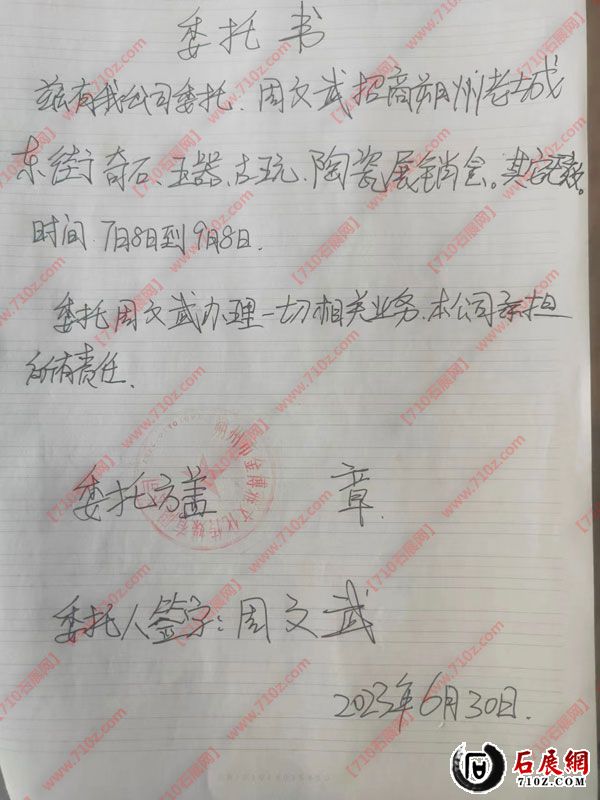 委托书
兹有我公司委托.周文武招商朔州老城
东街奇石、玉器、古玩、陶瓷展销会。其
时间 7月8日到9月8日.
委托周文武办理一切相关业务.本公司承担
所有责任.
委托方盖 章
委托人签字:周文武
2023年6月30日.
【710石展网】www.710z.com
石展網
710Z.COM